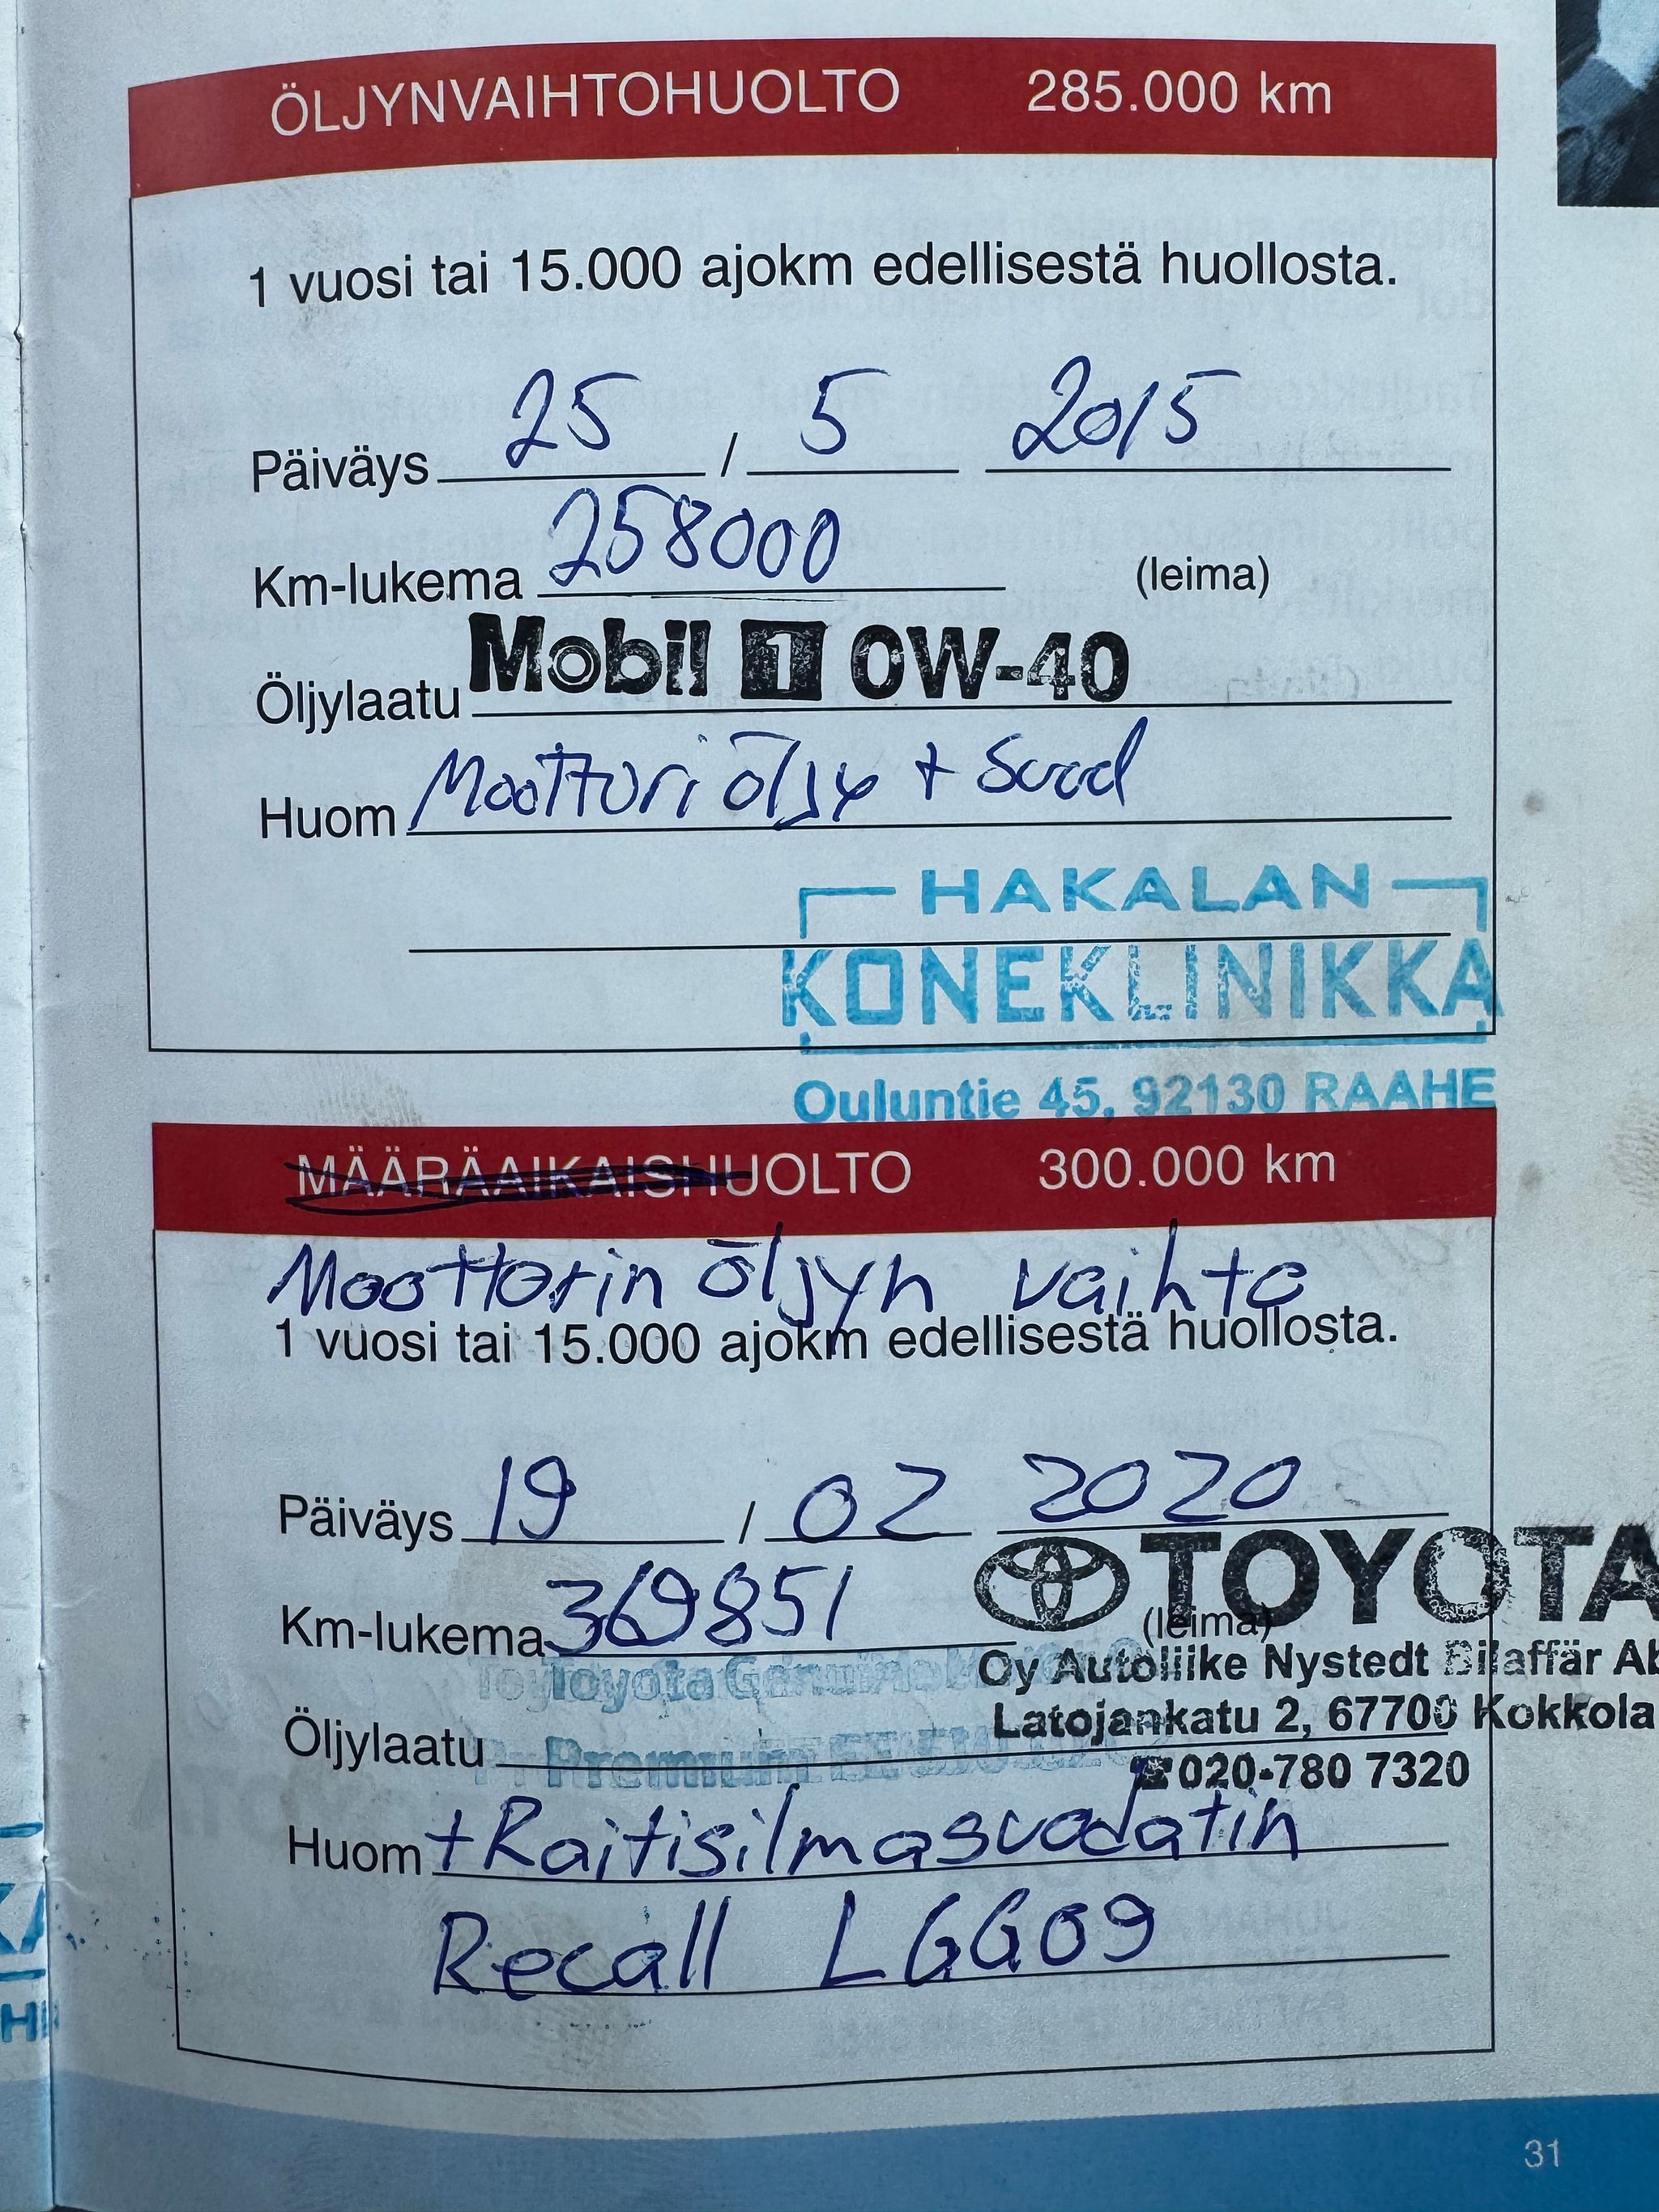 ÖLJYNVAIHTOHUOLTO 285.000 km
1 vuosi tai 15.000 ajokm edellisestä huollosta.
Päiväys 25 / 5 2015
Km-lukema 258000 (leima)
Öljylaatu Mobil 1 0W-40
Huom Moottoriöljy + Suod
HAKALAN
KONEKLINIKKA
Ouluntie 45, 92130 RAAHE
MÄÄRÄAIKAISHUOLTO 300.000 km
Moottorin öljyn vaihto
1 vuosi tai 15.000 ajokm edellisestä huollosta.
Päiväys 19 / 02 2020
TOYOTA
Km-lukema 369851 (leima)
Toyota Genuine
Oy Autoliike Nystedt Bilaffär Ab
Latojankatu 2, 67700 Kokkola
Öljylaatu Premium
☎ 020-780 7320
Huom + Raitisilmasuodatin
Recall LGG09
31